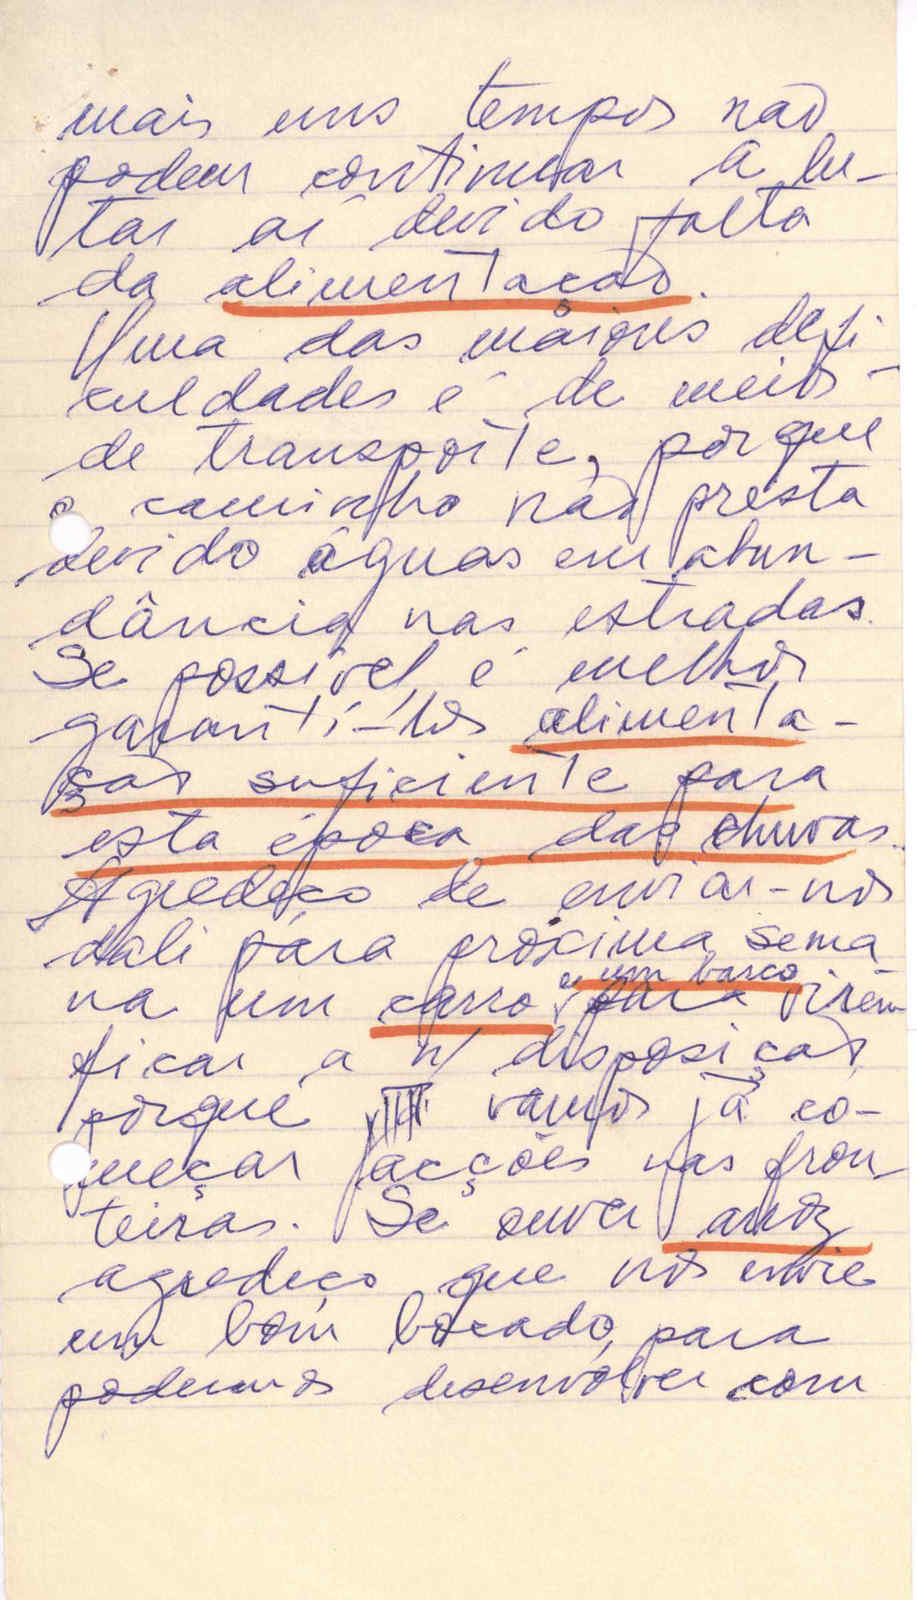 mais uns tempos não
podem continuar a lu-
tar aí devido falta
da alimentação.
Uma das maiores defi
culdades é de meios -
de transporte, porque
o caminho não presta
devido águas em abun-
dância nas estradas.
Se possível, é melhor
garanti-los alimenta-
ção suficiente para
esta época das chuvas.
Agredeço de enviar-nos
dali para próxima sema
na um carro e um barco para virem
ficar a n/ disposição,
porque vamos já co-
meçar acções nas fron
teiras. Se ouver arroz
agredeço que nos envie
um bom bocado, para
podermos desenvolver com